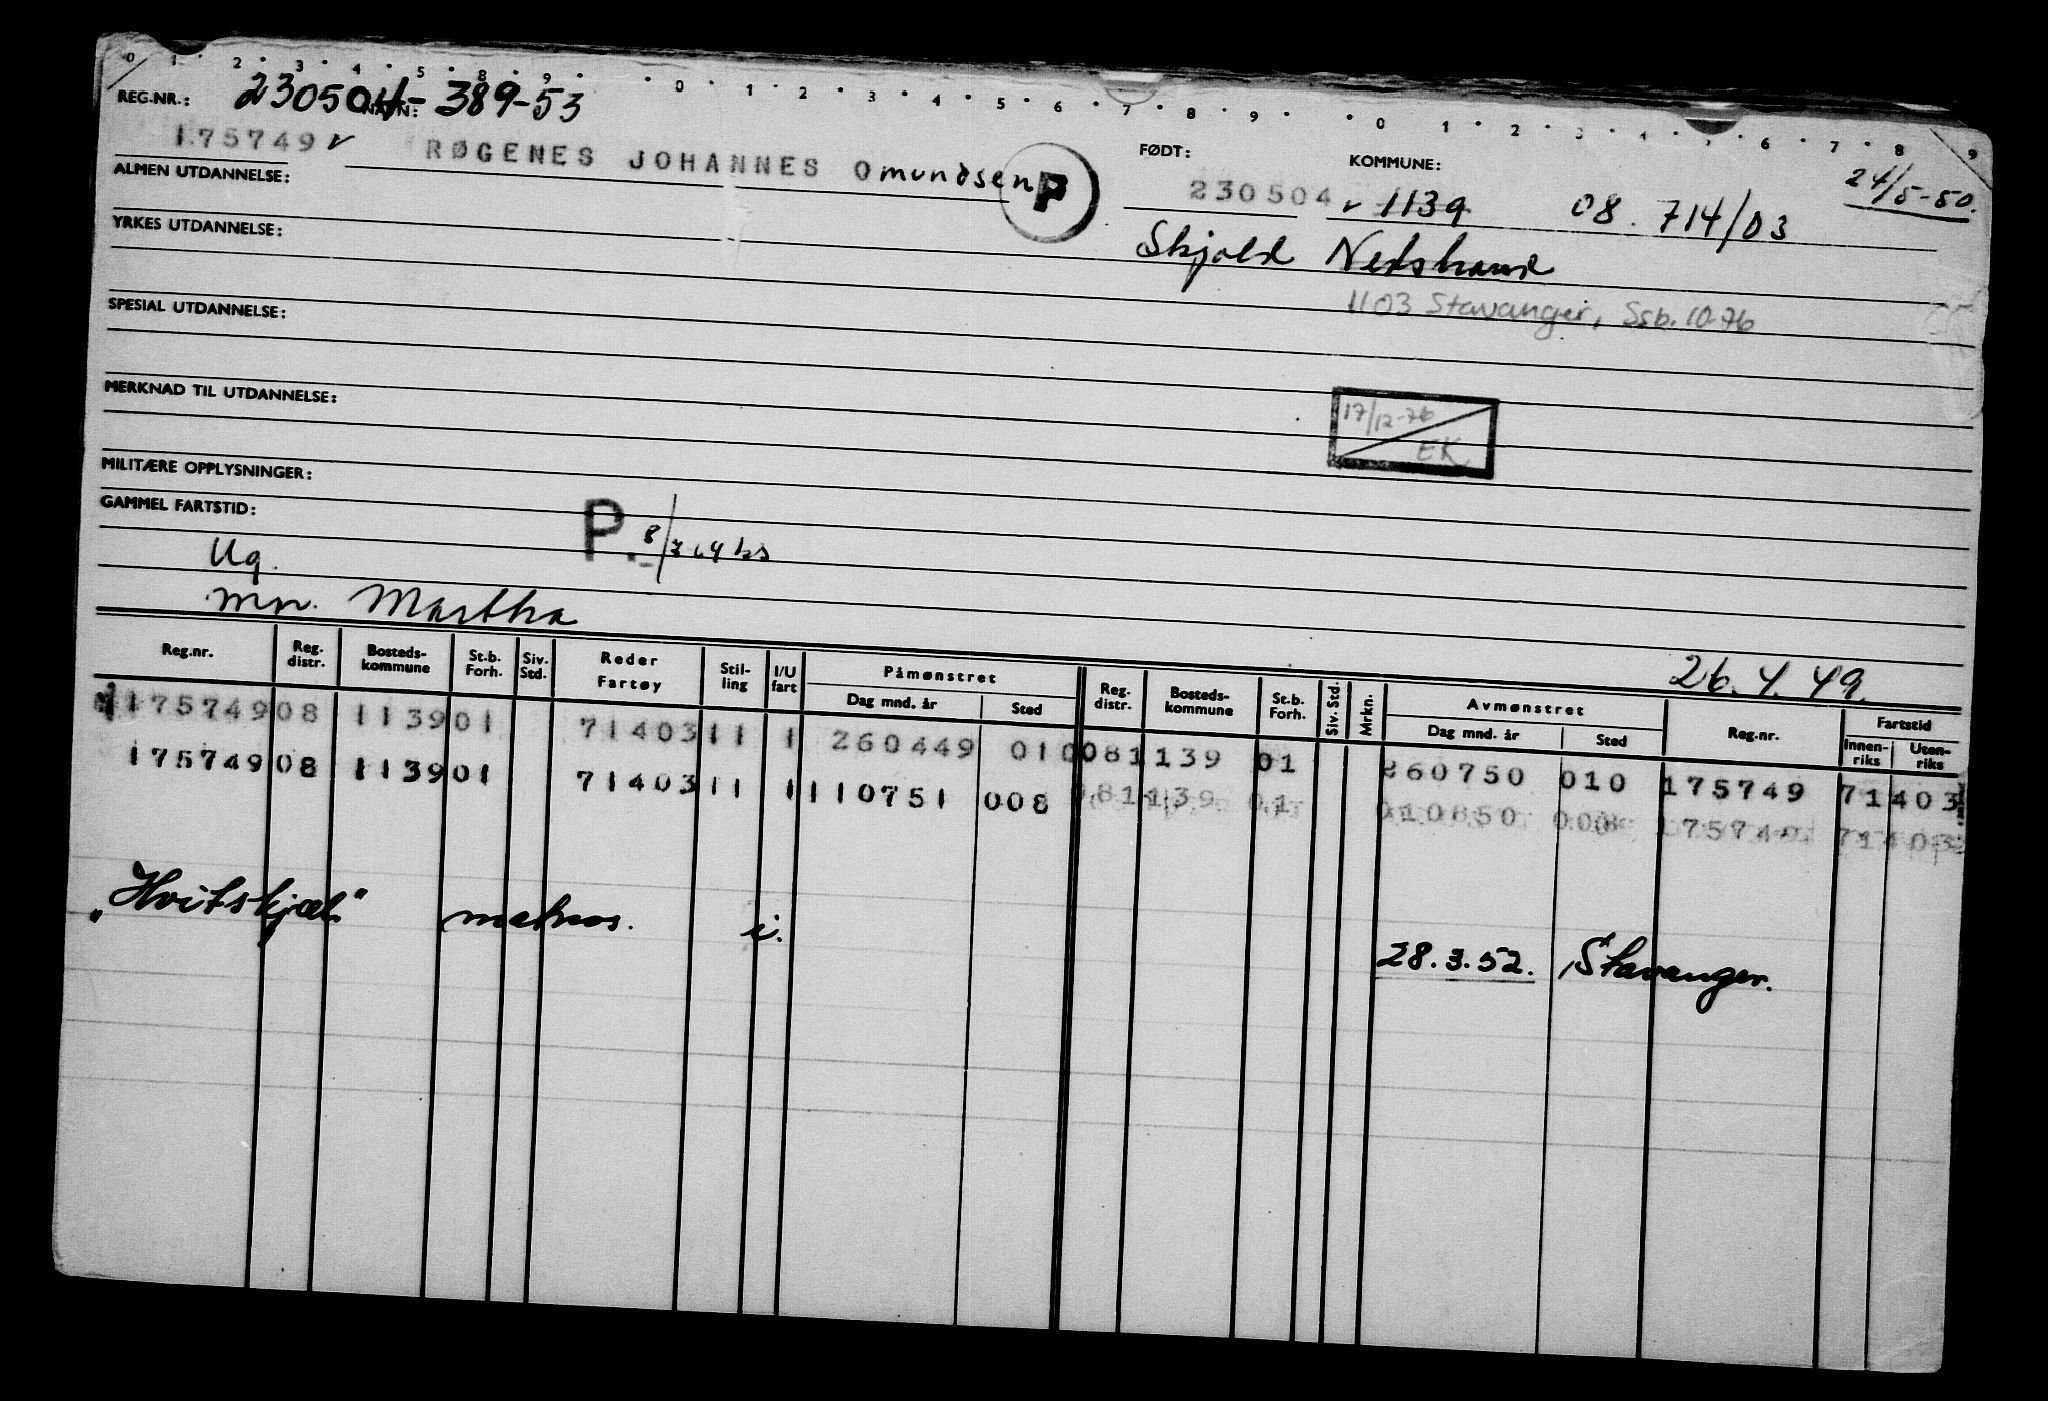 0 1 2 3 4 5 8 9 0 1 2 3 4 5 6 7 8 9 0 1 2 3 4 5 6 7 8 9
REG.NR.: 230504-389-53 NAVN:
175749 v RØGENES JOHANNES Omundsen P FØDT: 230504 KOMMUNE: v 1139 08. 714/03 24/5-50.
ALMEN UTDANNELSE:
Skjold Nedstrand
YRKES UTDANNELSE:
1103 Stavanger, Ssb. 10-76
SPESIAL UTDANNELSE:
MERKNAD TIL UTDANNELSE:
17/12-76
EK
MILITÆRE OPPLYSNINGER:
GAMMEL FARTSTID:
P. 8/7 64
Ug.
mn. Martha 26.4.49
Reg.nr. Reg. distr. Bosteds-kommune St.b. Forh. Siv. Std. Reder Fartøy Stil-ling I/U fart Påmønstret Dag mnd. år Sted Reg. distr. Bosteds-kommune St.b. Forh. Siv. Std. Mrkn. Avmønstret Dag mnd. år Sted Reg.nr. Fartstid Innen-riks Uten-riks
175749 08 1139 01 71403 11 1 260449 010 08 1139 01 260750 010 175749 71403
175749 08 1139 01 71403 11 1 110751 008 08 1139 01 008 71403
"Hvitskjæl" matros. i. 28.3.52. Stavanger.